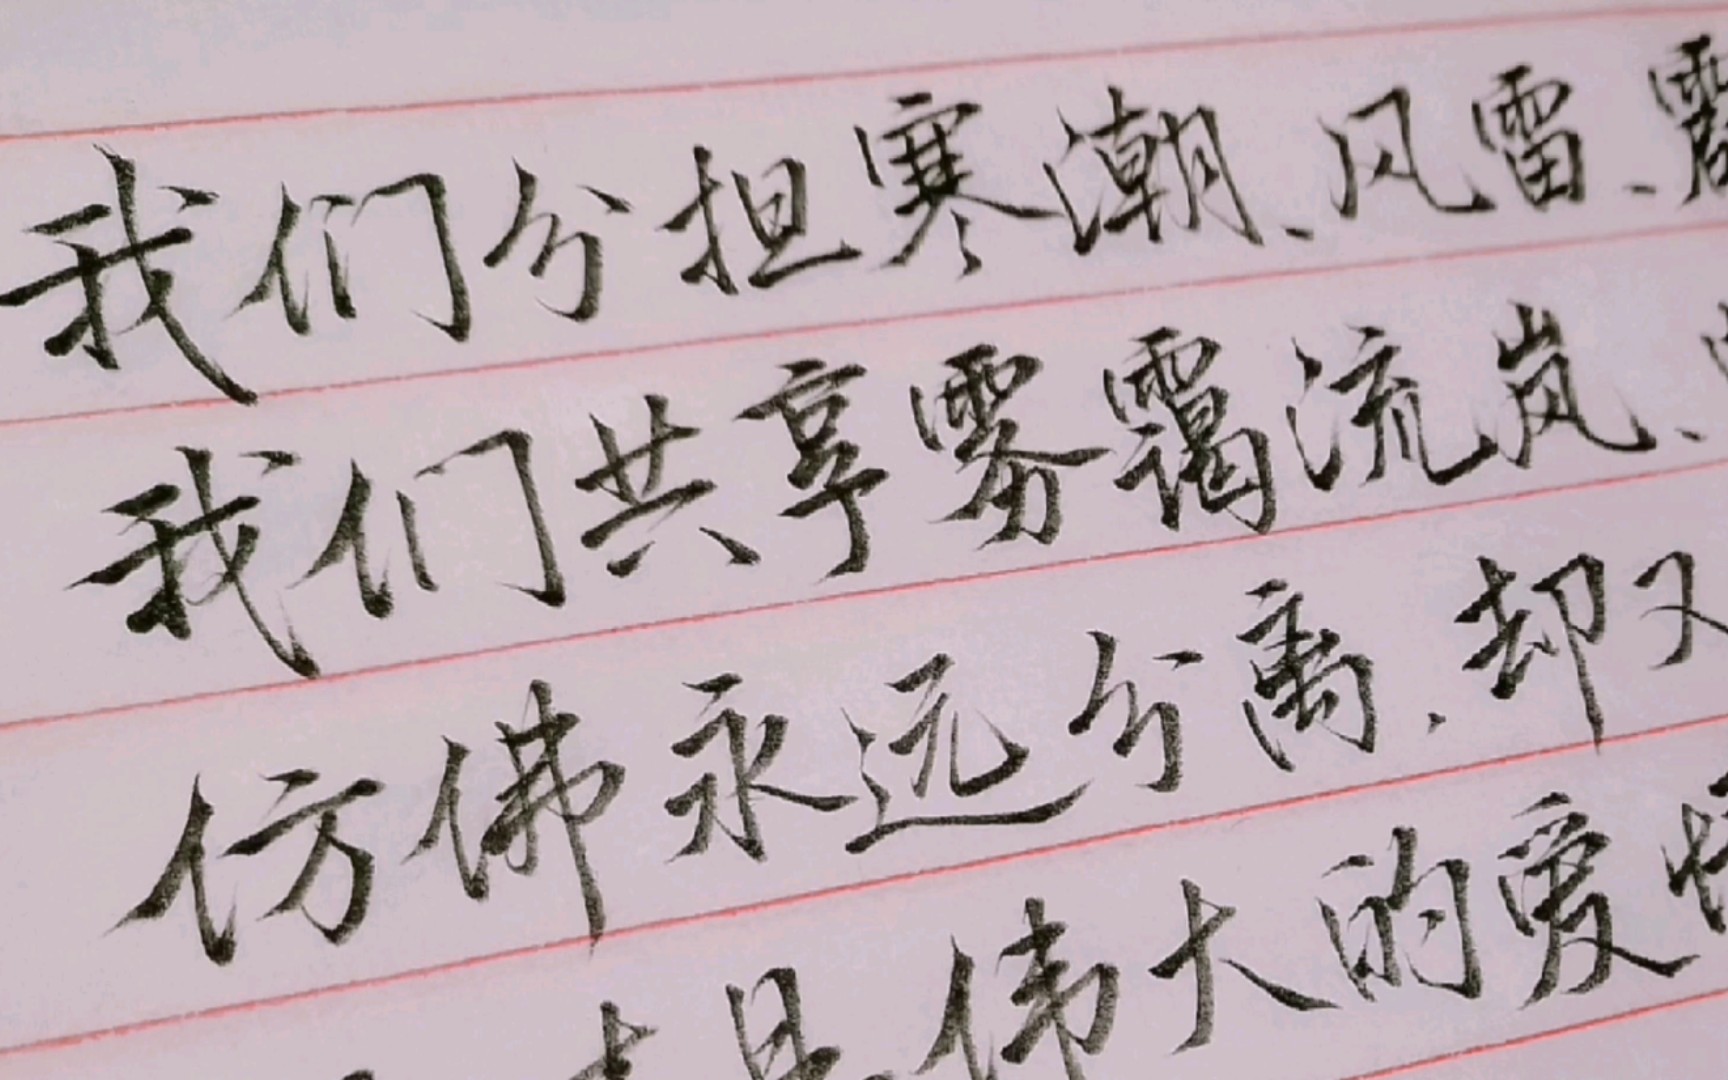 我们分担寒潮、风雷、霹
我们共享雾霭流岚、
仿佛永远分离,却又
才是伟大的爱情